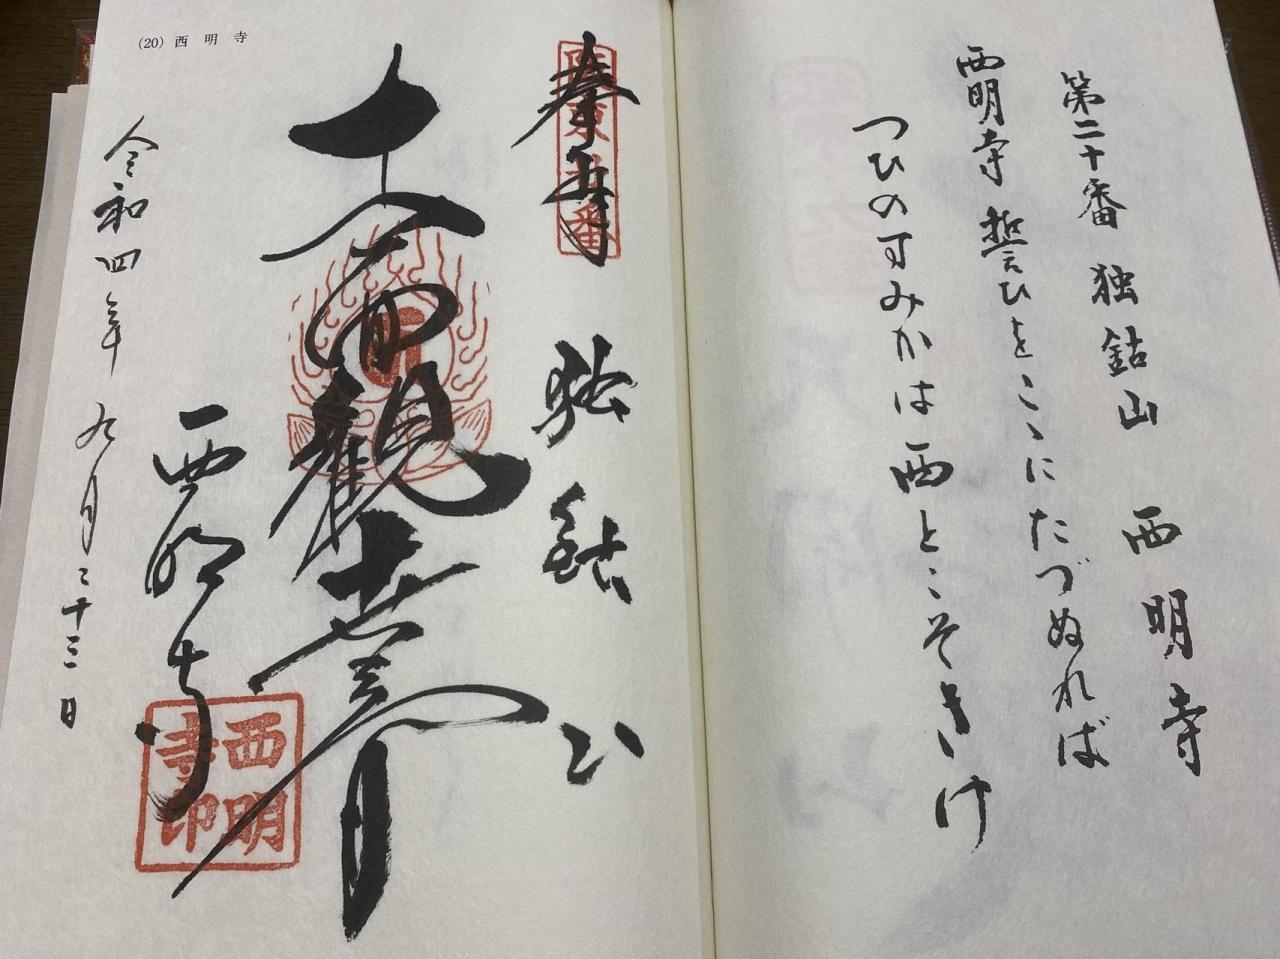 第二十番 独鈷山 西明寺
西明寺 誓ひをこゝにたづぬれば
つひのすみかは西とこそきけ
奉拝
坂東二十番
独鈷山
十一面観世音
西明寺
西明寺印
令和四年 九月二十三日
(20) 西明寺